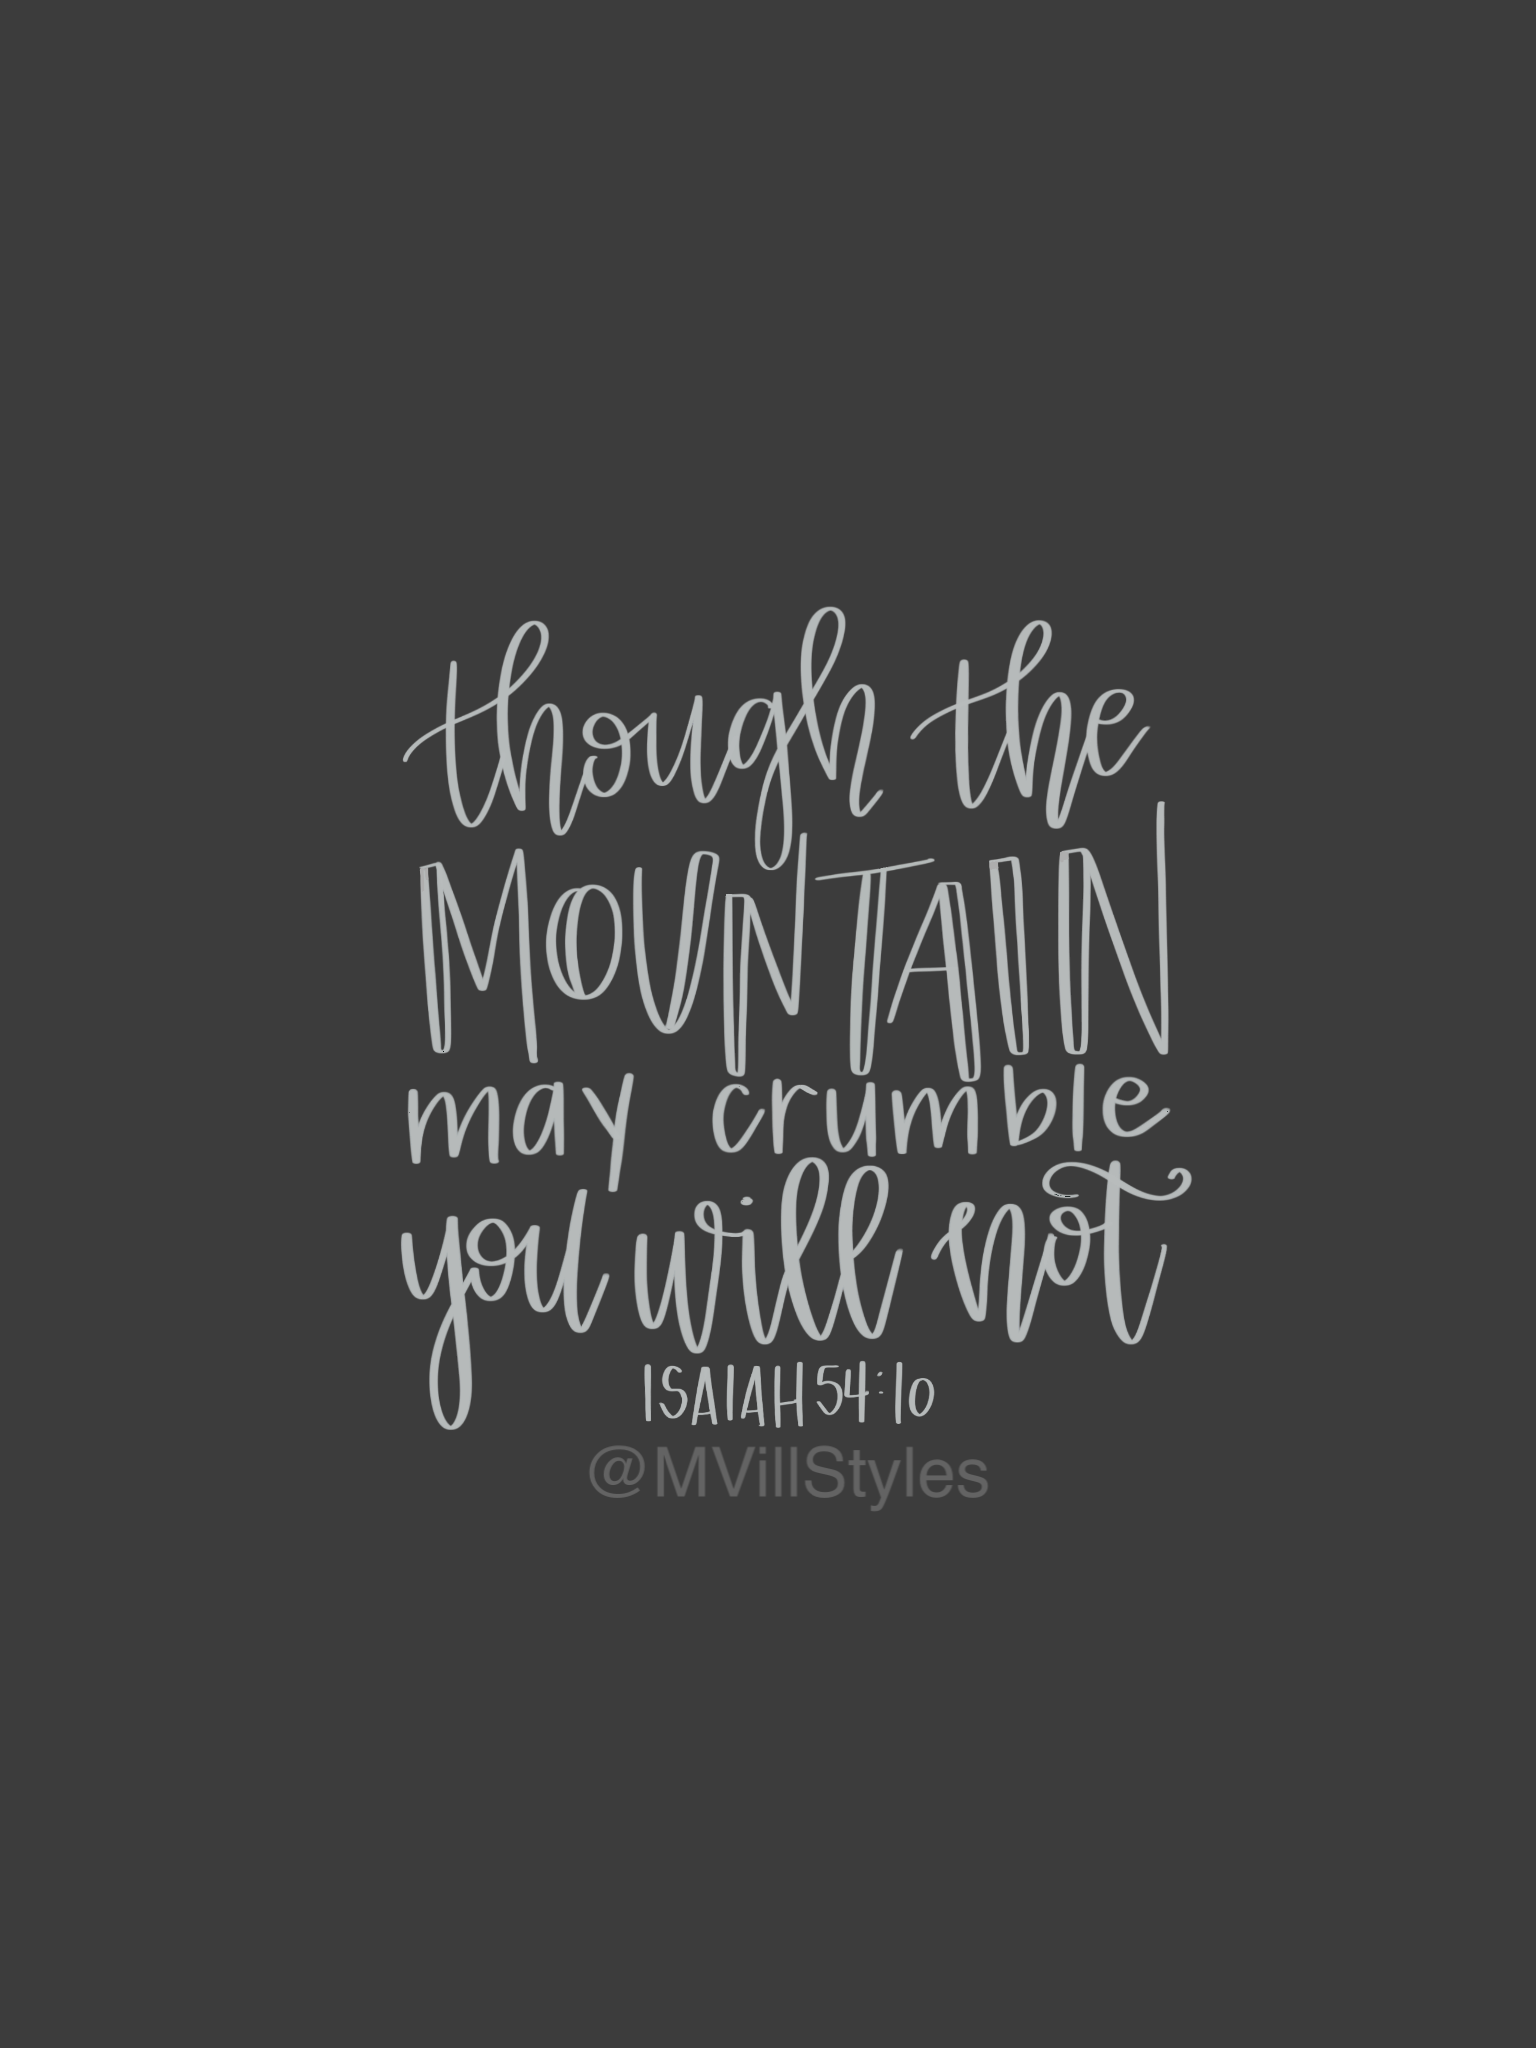 though the
MOUNTAIN
may crumble
you will not
ISAIAH 54:10
@MVillStyles